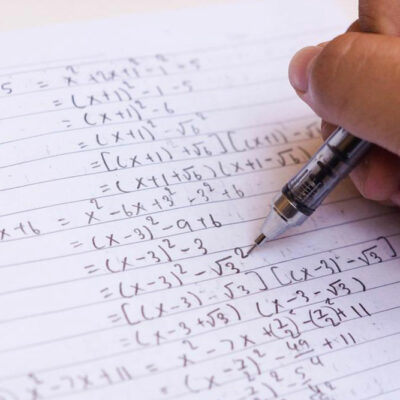 5 = x² + 2x + 1 - 1 - 5
= (x+1)² - 1 - 5
= (x+1)² - 6
= (x+1)² - √6²
= [(x+1) + √6] [(x+1) - √6
= (x+1+√6) (x+1-√6)
x + 6 = x² - 6x + 3² - 3² + 6
= (x-3)² - 9 + 6
= (x-3)² - 3
= (x-3)² - √3²
= [(x-3) - √3] [(x-3) - √3]
= (x-3+√3) (x-3-√3)
x² - 7x + 11 = x² - 7x + (7/2)² - (7/2)² + 11
= (x - 7/2)² - 49/4 + 11
= (x - 7/2)² - 5/4